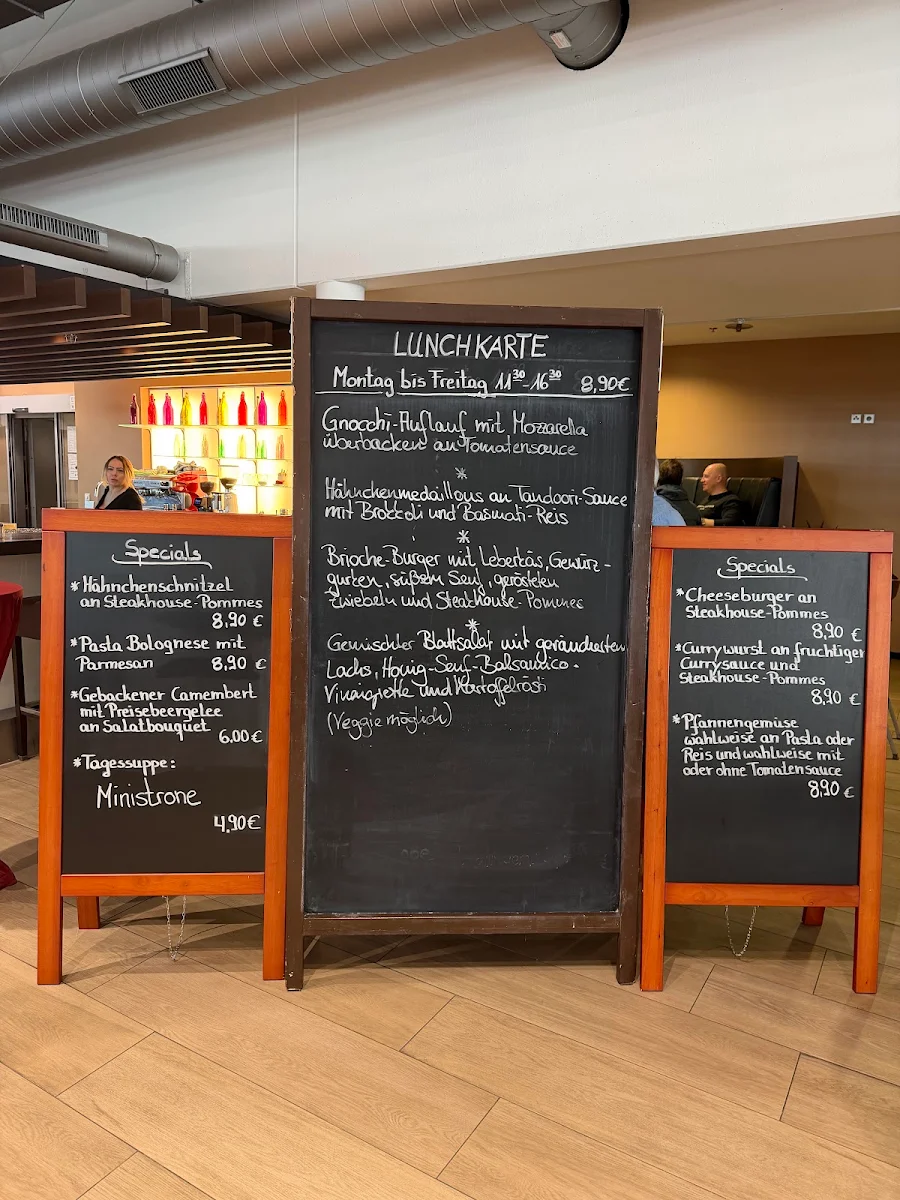 Specials
*Hähnchenschnitzel
an Steakhouse-Pommes
8,90 €
*Pasta Bolognese mit
Parmesan 8,90 €
*Gebackener Camembert
mit Preisebeergelee
an Salatbouquet 6,00 €
*Tagessuppe:
Ministrone
4,90 €
LUNCHKARTE
Montag bis Freitag 11³⁰-16³⁰ 8,90€
Gnocchi-Auflauf mit Mozzarella
überbacken an Tomatensauce
*
Hähnchenmedaillons an Tandoori-Sauce
mit Broccoli und Basmati-Reis
*
Brioche-Burger mit Leberkäs, Gewürz-
gurken, süßem Senf, gerösteten
Zwiebeln und Steakhouse-Pommes
*
Gemischter Blattsalat mit geräucherten
Lachs, Honig-Senf-Balsamico-
Vinaigrette und Kartoffelrösti
(Veggie möglich)
Specials
*Cheeseburger an
Steakhouse-Pommes
8,90 €
*Currywurst an fruchtiger
Currysauce und
Steakhouse-Pommes
8,90 €
*Pfannengemüse
wahlweise an Pasta oder
Reis und wahlweise mit
oder ohne Tomatensauce
8,90 €